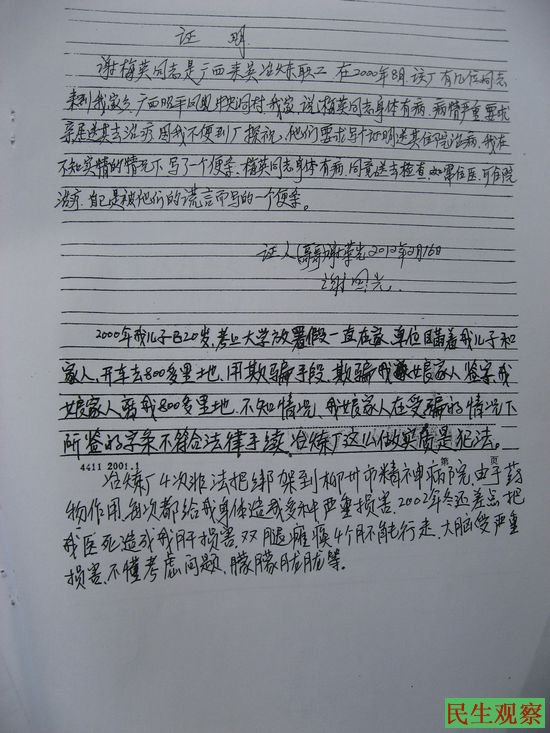 证明
谢梅英同志是广西来宾冶炼职工 在2000年8月该厂有几位同志
来到我家乡广西昭平同村我家,说梅英同志身体有病,病情严重要求
亲属送其去治疗因我不便到厂探视,他们要求写个证明送其住院治病,我在
不知实情的情况下写了一个便条:梅英同志身体有病,同意送去检查,如需住医,可住院
治疗.自己是被他们的谎言而写的一个便条。
证人(哥哥)谢荣光2012年2月16日
谢光
2000年我儿子已20岁,考上大学放暑假一直在家,单位瞒着我儿子和
家人,开车去800多里地,用欺骗手段,欺骗我娘家人签字.我
娘家人离我800多里地.不知情况,我娘家人在受骗的情况下
所签的字条不符合法律手续.冶炼厂这么做实质是犯法。
4411 2001.1 第 页
冶炼厂4次非法把绑架到柳州市精神病院,由于药
物作用,每次都给我身体造成多种严重损害.2002年冬还差点把
我医死造成我肝损害.双腿瘫痪4个月不能行走.大脑受严重
损害,不懂考虑问题,朦朦胧胧等.
民生观察